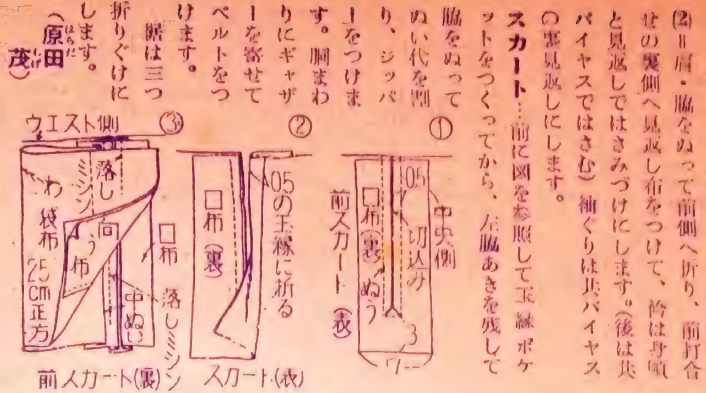 (2)＝肩・脇をぬって前側へ折り、前打合
せの裏側へ見返し布をつけて、衿は身頃
と見返しではさみづけにします。(後は共
バイヤスではさむ)袖ぐりは共バイヤス
の裏見返しにします。
スカート…前に図を参照して玉縁ポケ
ットをつくってから、左脇あきを残して
脇をぬって
ぬい代を割
り、ジッパ
ーをつけま
す。胴まわ
りにギャザ
ーを寄せて
ベルトをつ
けます。
裾は三つ
折りぐけに
します。
(原田
はらだ
茂)
しげ
①
中央側
0.5
切込み
口布(裏)
ぬう
3
7
前スカート(表)
②
0.5の玉縁に折る
口布(裏)
スカート(表)
③
ウエスト側
落しミシン
わ
袋布
25cm正方
向う布
口布
中ぬい
落しミシン
前スカート(裏)